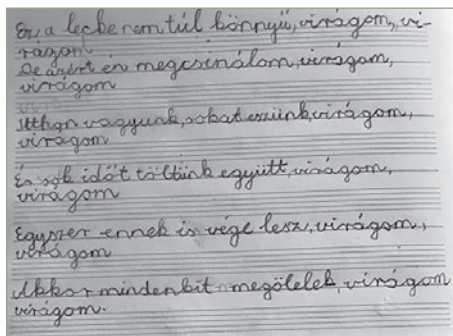 Ez, a lecke nem túl könnyű, virágom, vi-
rágom
De azért én megcsinálom, virágom,
virágom
Itthon vagyunk, sokat eszünk, virágom,
virágom
És sok időt töltünk együtt, virágom,
virágom
Egyszer ennek is vége lesz, virágom,
virágom
Akkor mindenkit megölelek, virágom
virágom.